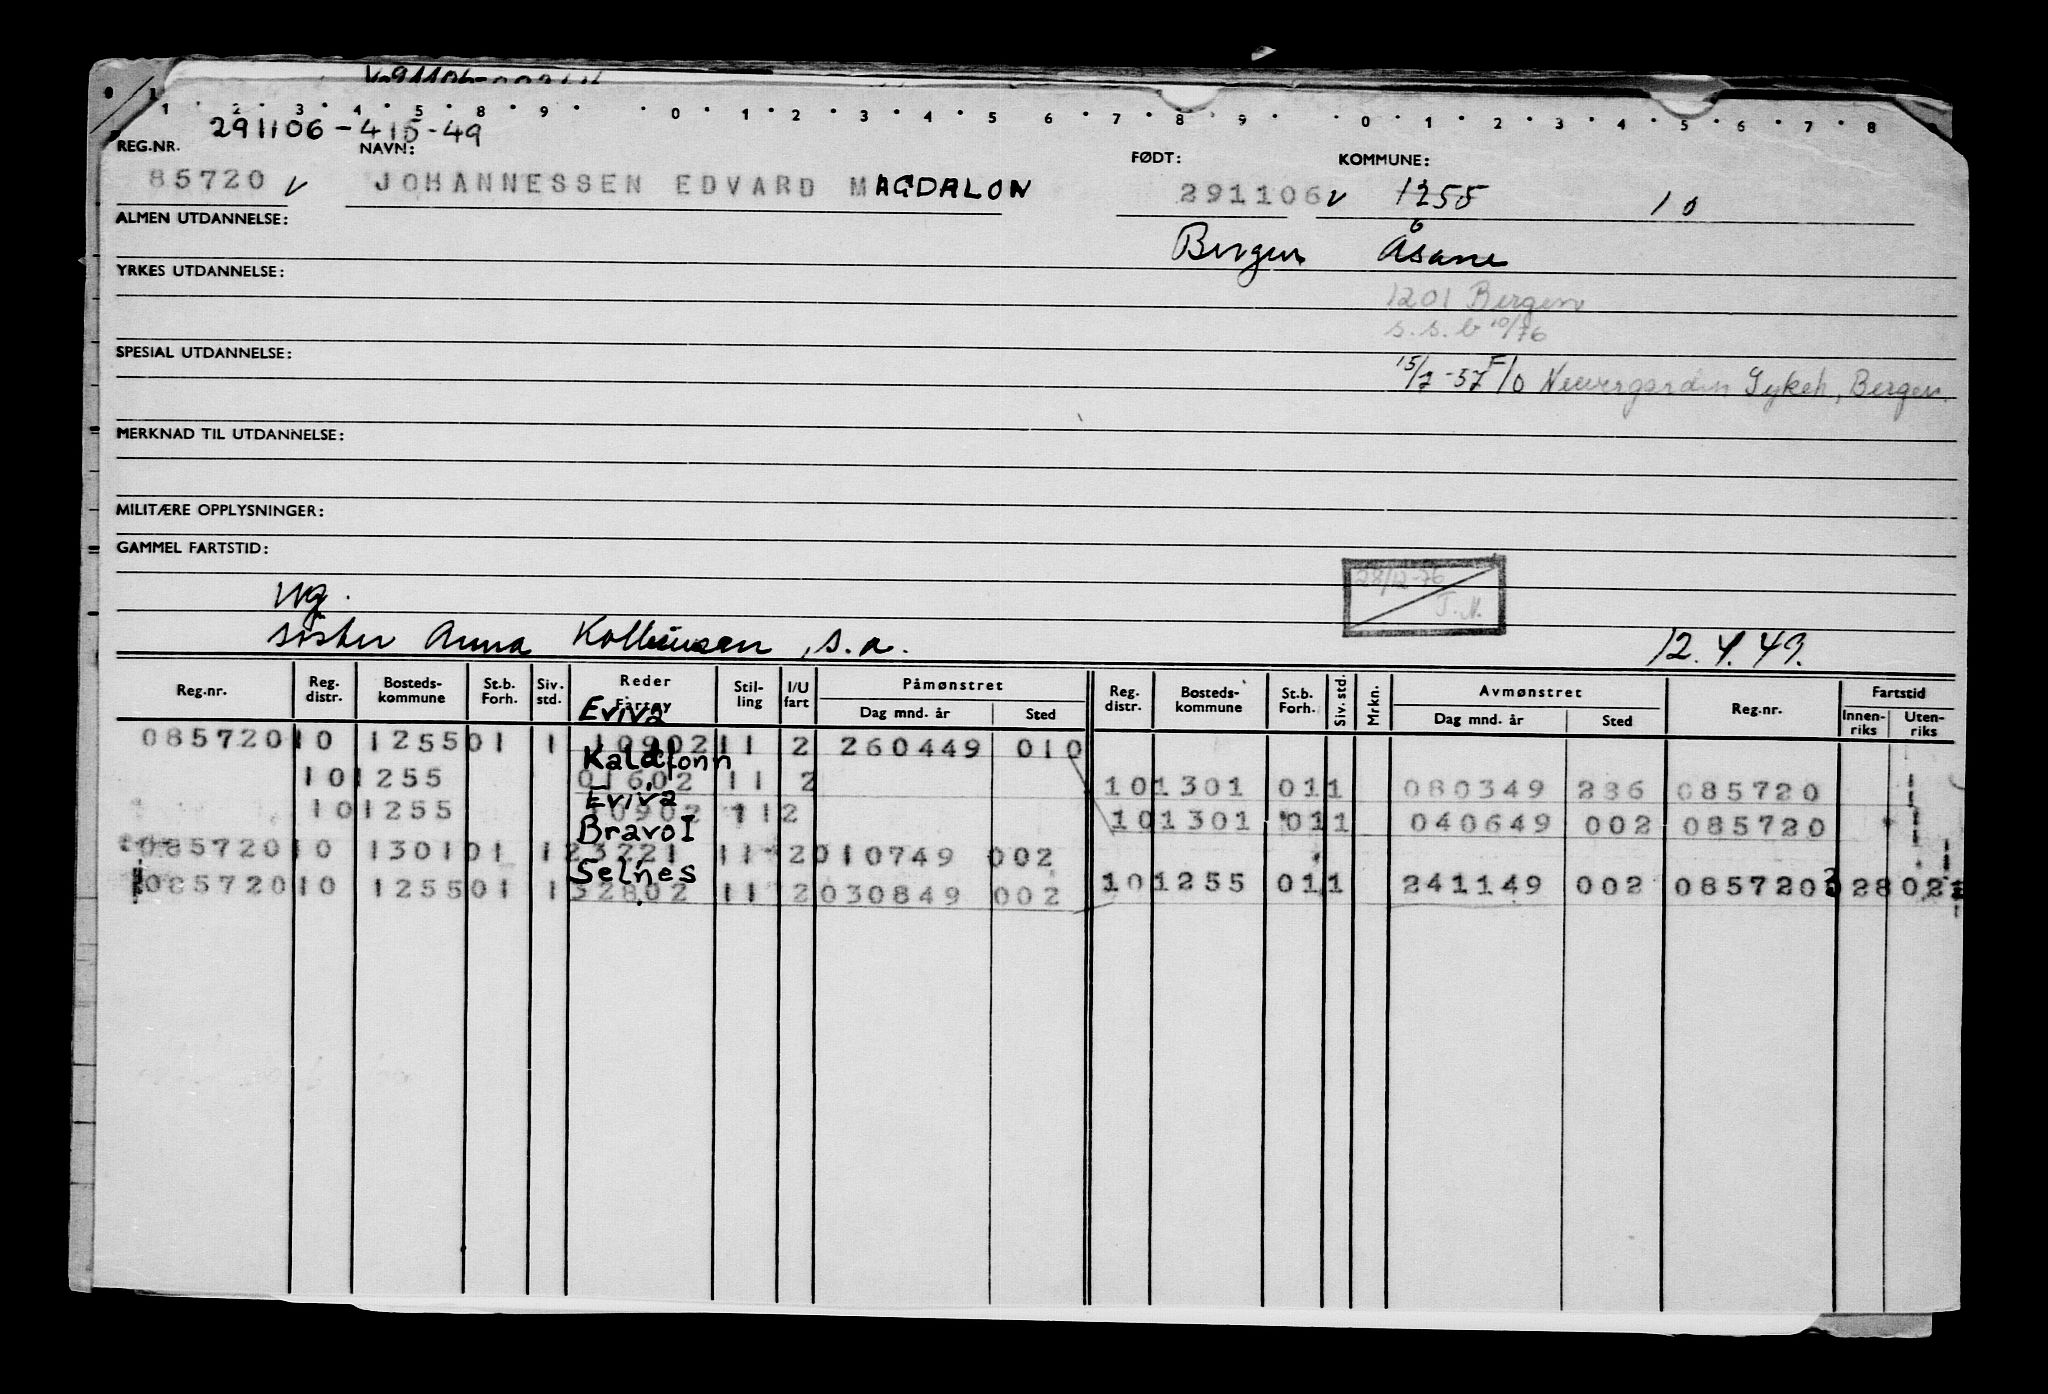 1 2 3 4 5 8 9 0 1 2 3 4 5 6 7 8 9 0 1 2 3 4 5 6 7 8
291106-415-49
REG.NR. NAVN: FØDT: KOMMUNE:
85720 v JOHANNESSEN EDVARD MAGDALON 291106 v 1255 10
ALMEN UTDANNELSE:
Bergen Åsane
YRKES UTDANNELSE:
1201 Bergen
s.s.b 10/76
SPESIAL UTDANNELSE:
15/7-57 F/o Neevengarden Sykeh, Bergen.
MERKNAD TIL UTDANNELSE:
MILITÆRE OPPLYSNINGER:
GAMMEL FARTSTID:
28/12-76
T.N.
ug.
søster Anna , s.a. 12.4.49.
Reg.nr. Reg. distr. Bosteds-kommune St.b. Forh. Siv. std. Reder Fartøy Stil-ling I/U fart Påmønstret Dag mnd. år Sted Reg. distr. Bosteds-kommune St.b. Forh. Siv. std. Mrkn. Avmønstret Dag mnd. år Sted Reg.nr. Fartstid Innen-riks Uten-riks
Eviva
085720 10 1255 01 1 10902 11 2 260449 010
Kaldfonn
10 1255 01602 11 2 10 1301 01 1 080349 286 085720
Eviva
10 1255 10902 11 2 10 1301 01 1 040649 002 085720
Bravo I
085720 10 1301 01 1 23221 11 2 010749 002
Selnes
085720 10 1255 01 1 32802 11 2 030849 002 10 1255 01 1 241149 002 085720